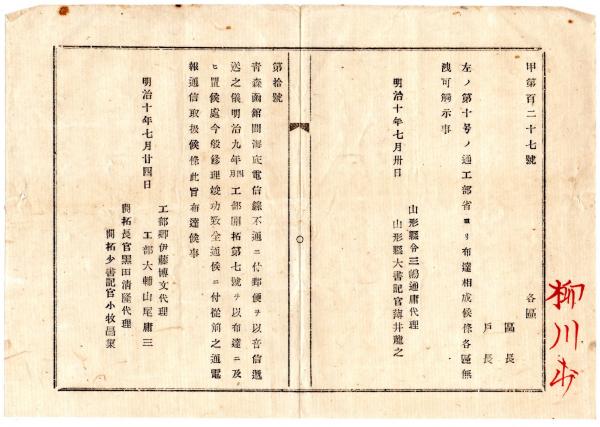 甲第百二十七號
各區
區長
戶長
左ノ第十号ノ通工部省ヨリ布達相成候條各區無
洩可觸示事
明治十年七月卅日
山形縣令三島通庸代理
山形縣大書記官薄井龍之
第拾號
青森函館間海底電信線不通ニ付郵便ヲ以音信遞
送之儀明治九年四月工部開拓第七號ヲ以布達ニ及
ヒ置候處今般修理竣功致全通候ニ付從前之通電
報通信取扱候條此旨布達候事
明治十年七月廿四日
工部卿伊藤博文代理
工部大輔山尾庸三
開拓長官黑田清隆代理
開拓少書記官小牧昌業
柳川